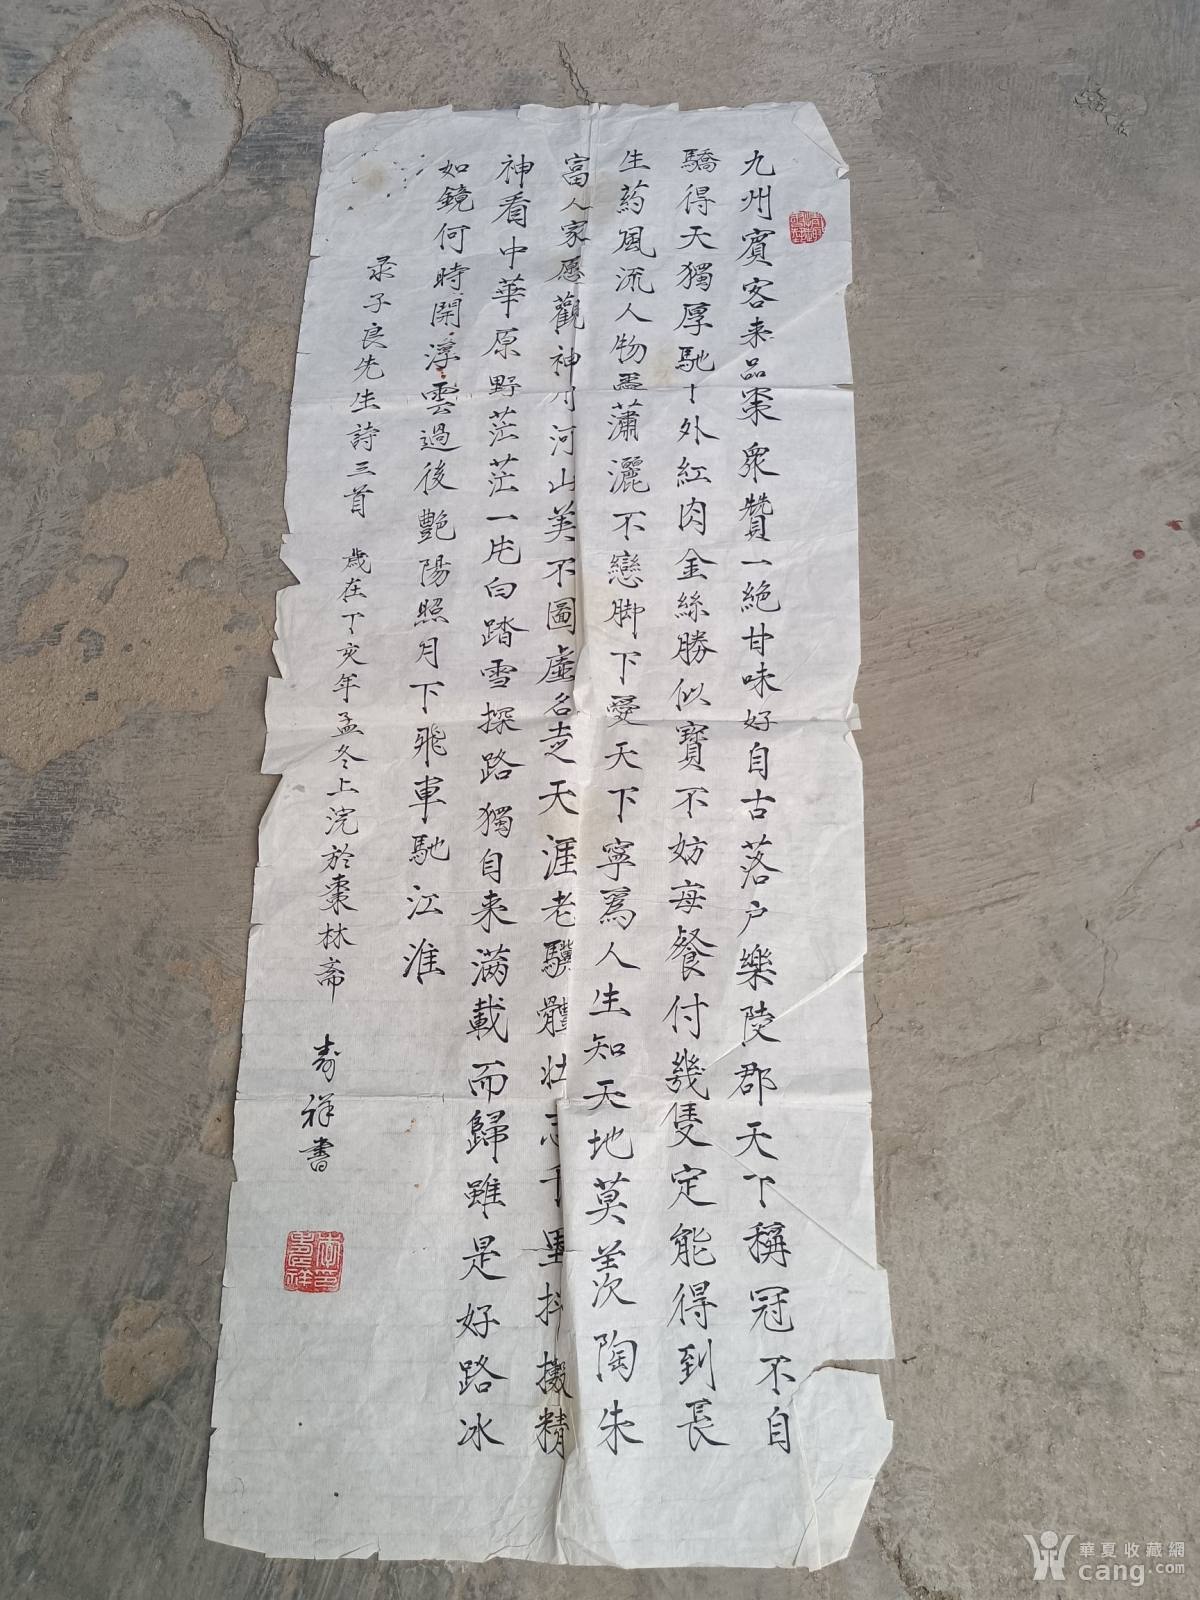 九州賓客来品棗衆贊一絶甘味好自古落户樂陵郡天下稱冠不自
驕得天獨厚馳外紅肉金絲勝似寶不妨每餐付幾隻定能得到長
生葯風流人物盡蕭灑不戀脚下愛天下寧為人生知天地莫羨陶朱
富人家愿觀神州河山美不圖虛名走天涯老驥體壯志千里抖擻精
神看中華原野茫茫一片白踏雪探路獨自来滿載而歸雖是好路冰
如鏡何時開浮雲過後艷陽照月下飛車馳江淮
录子良先生詩三首 歲在丁亥年孟冬上浣於棗林斋 壽祥書
華夏收藏網
cang.com